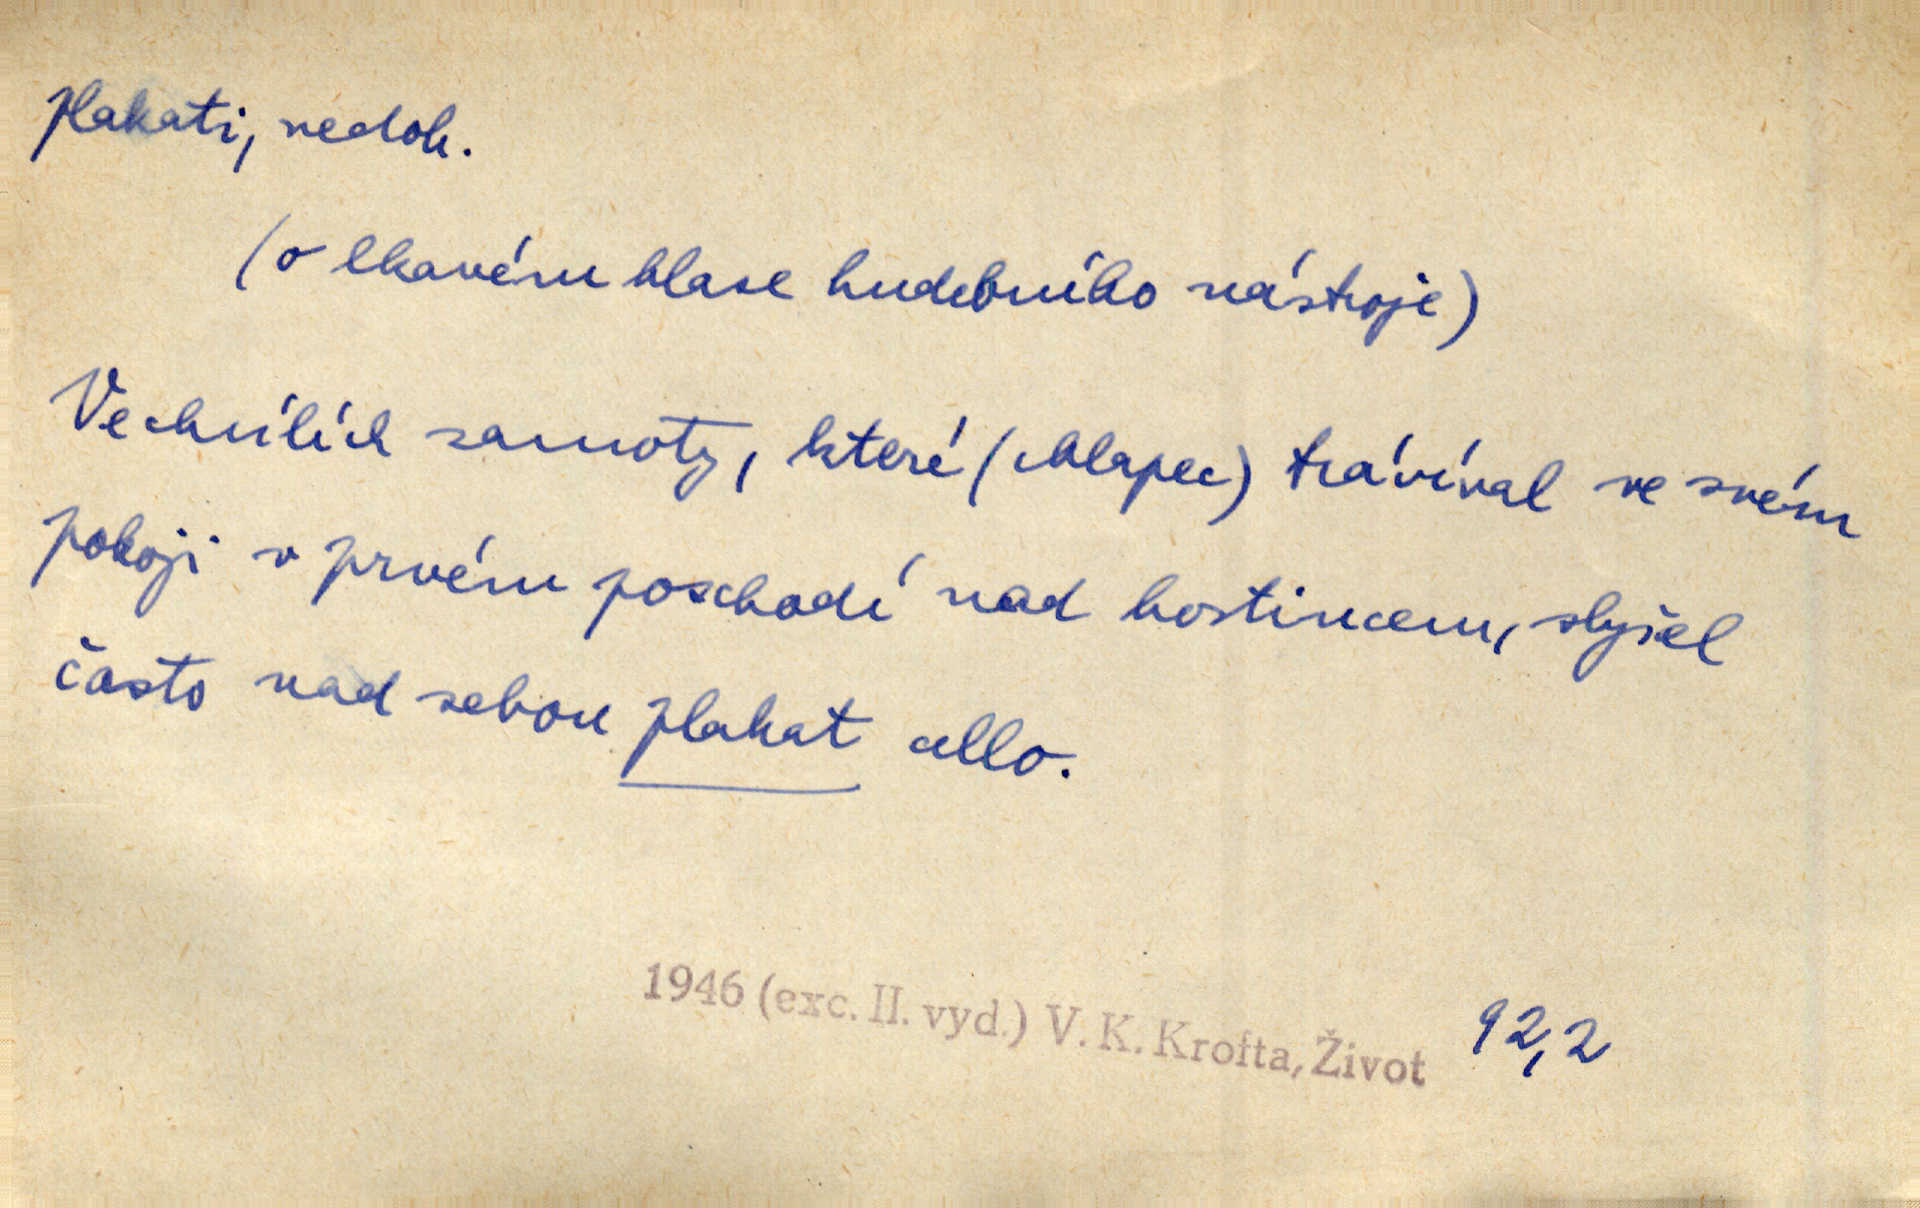 plakati, nedok.
(o lkavém hlase hudebního nástroje)
Ve chvílích samoty, které (chlapec) trávíval ve svém
pokoji v prvém poschodí nad hostincem, slyšel
často nad sebou plakat cello.
1946 (exc. II. vyd.) V. K. Krofta, Život 92,2